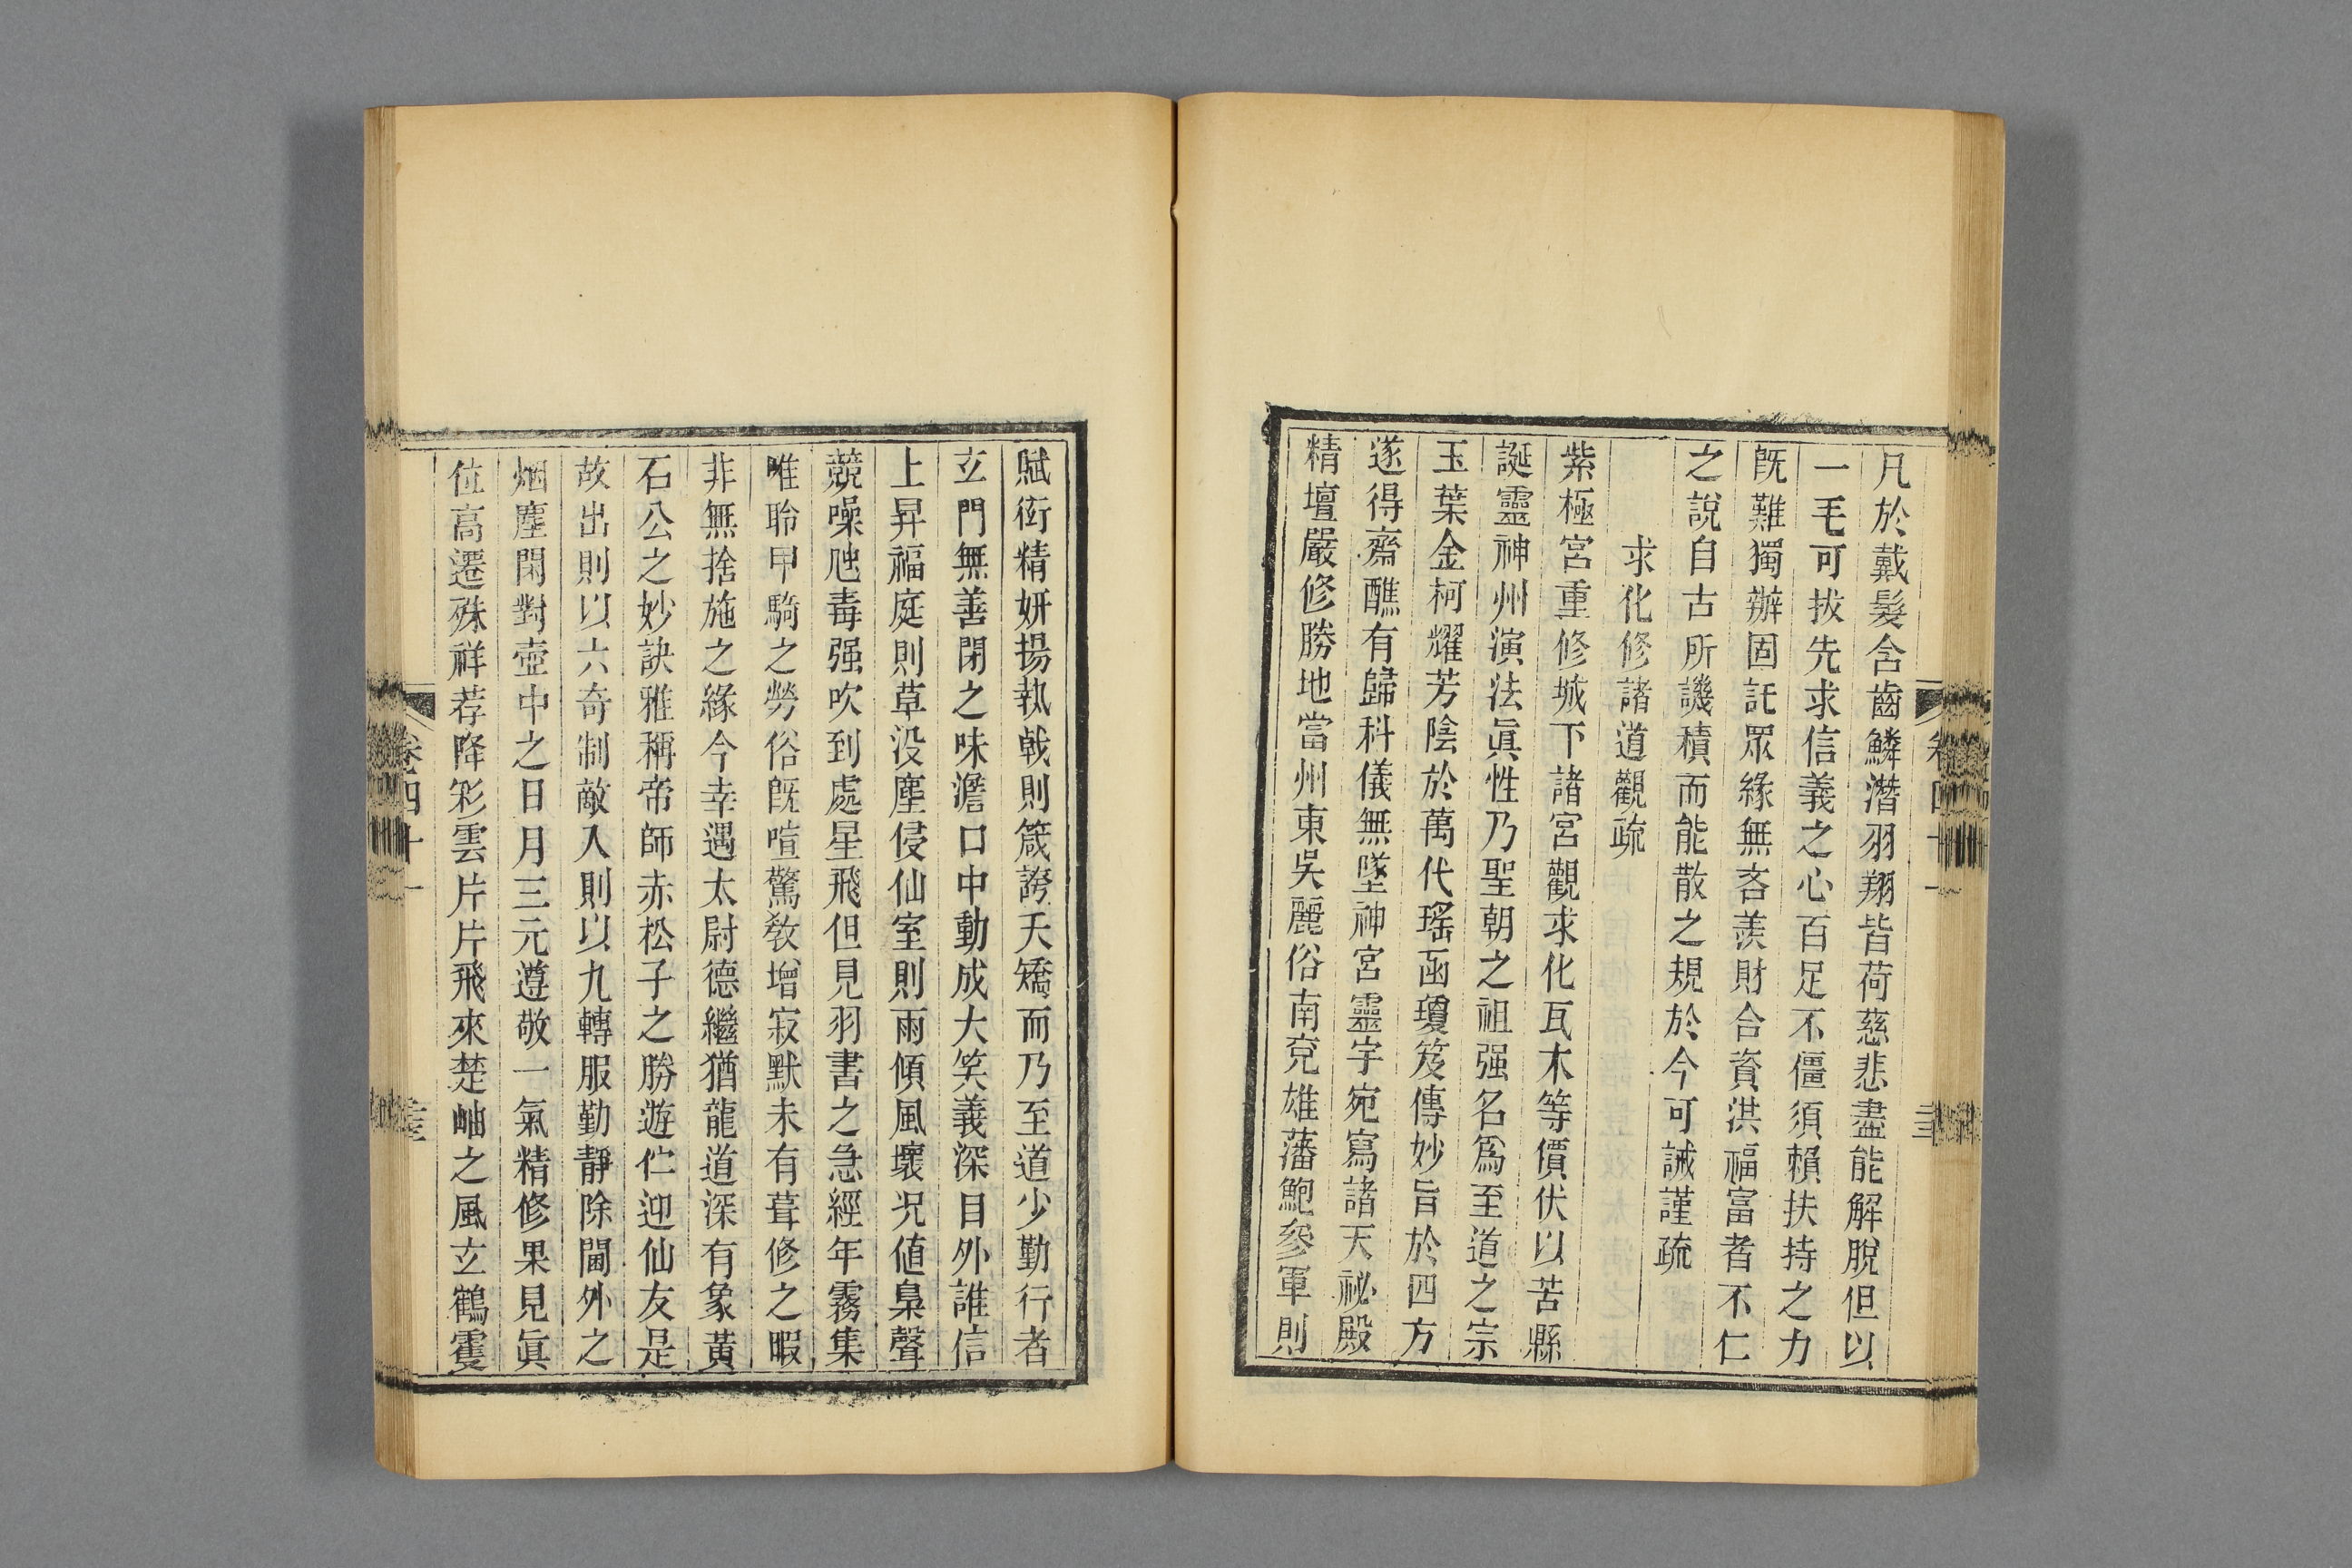 凡於戴髮含齒鱗潛羽翔皆荷慈悲盡能解脫但以
一毛可拔先求信義之心百足不僵須賴扶持之力
旣難獨辦固託眾緣無吝羨財合資洪福富者不仁
之說自古所譏積而能散之規於今可誡謹疏
求化修諸道觀疏
紫極宮重修城下諸宮觀求化瓦木等價伏以苦縣
誕靈神州演法眞性乃聖朝之祖强名爲至道之宗
玉葉金柯耀芳陰於萬代瑤函瓊笈傳妙旨於四方
遂得齋醮有歸科儀無墜神宮靈宇宛寫諸天祕殿
精壇嚴修勝地當州東吳麗俗南兗雄藩鮑參軍則
賦衒精妍揚執戟則箴誇夭矯而乃至道少勤行者
玄門無善閉之味澹口中動成大笑義深目外誰信
上昇福庭則草没塵侵仙室則雨傾風壞况値梟聲
競噪虺毒强吹到處星飛但見羽書之急經年霧集
唯聆甲騎之勞俗旣喧驚敎增寂默未有葺修之暇
非無捨施之緣今幸遇太尉德繼猶龍道深有象黃
石公之妙訣雅稱帝師赤松子之勝遊伫迎仙友是
故出則以六奇制敵入則以九轉服勤靜除閫外之
烟塵閑對壺中之日月三元遵敬一氣精修果見眞
位高遷殊祥荐降彩雲片片飛來楚岫之風玄鶴雙
卷四十一